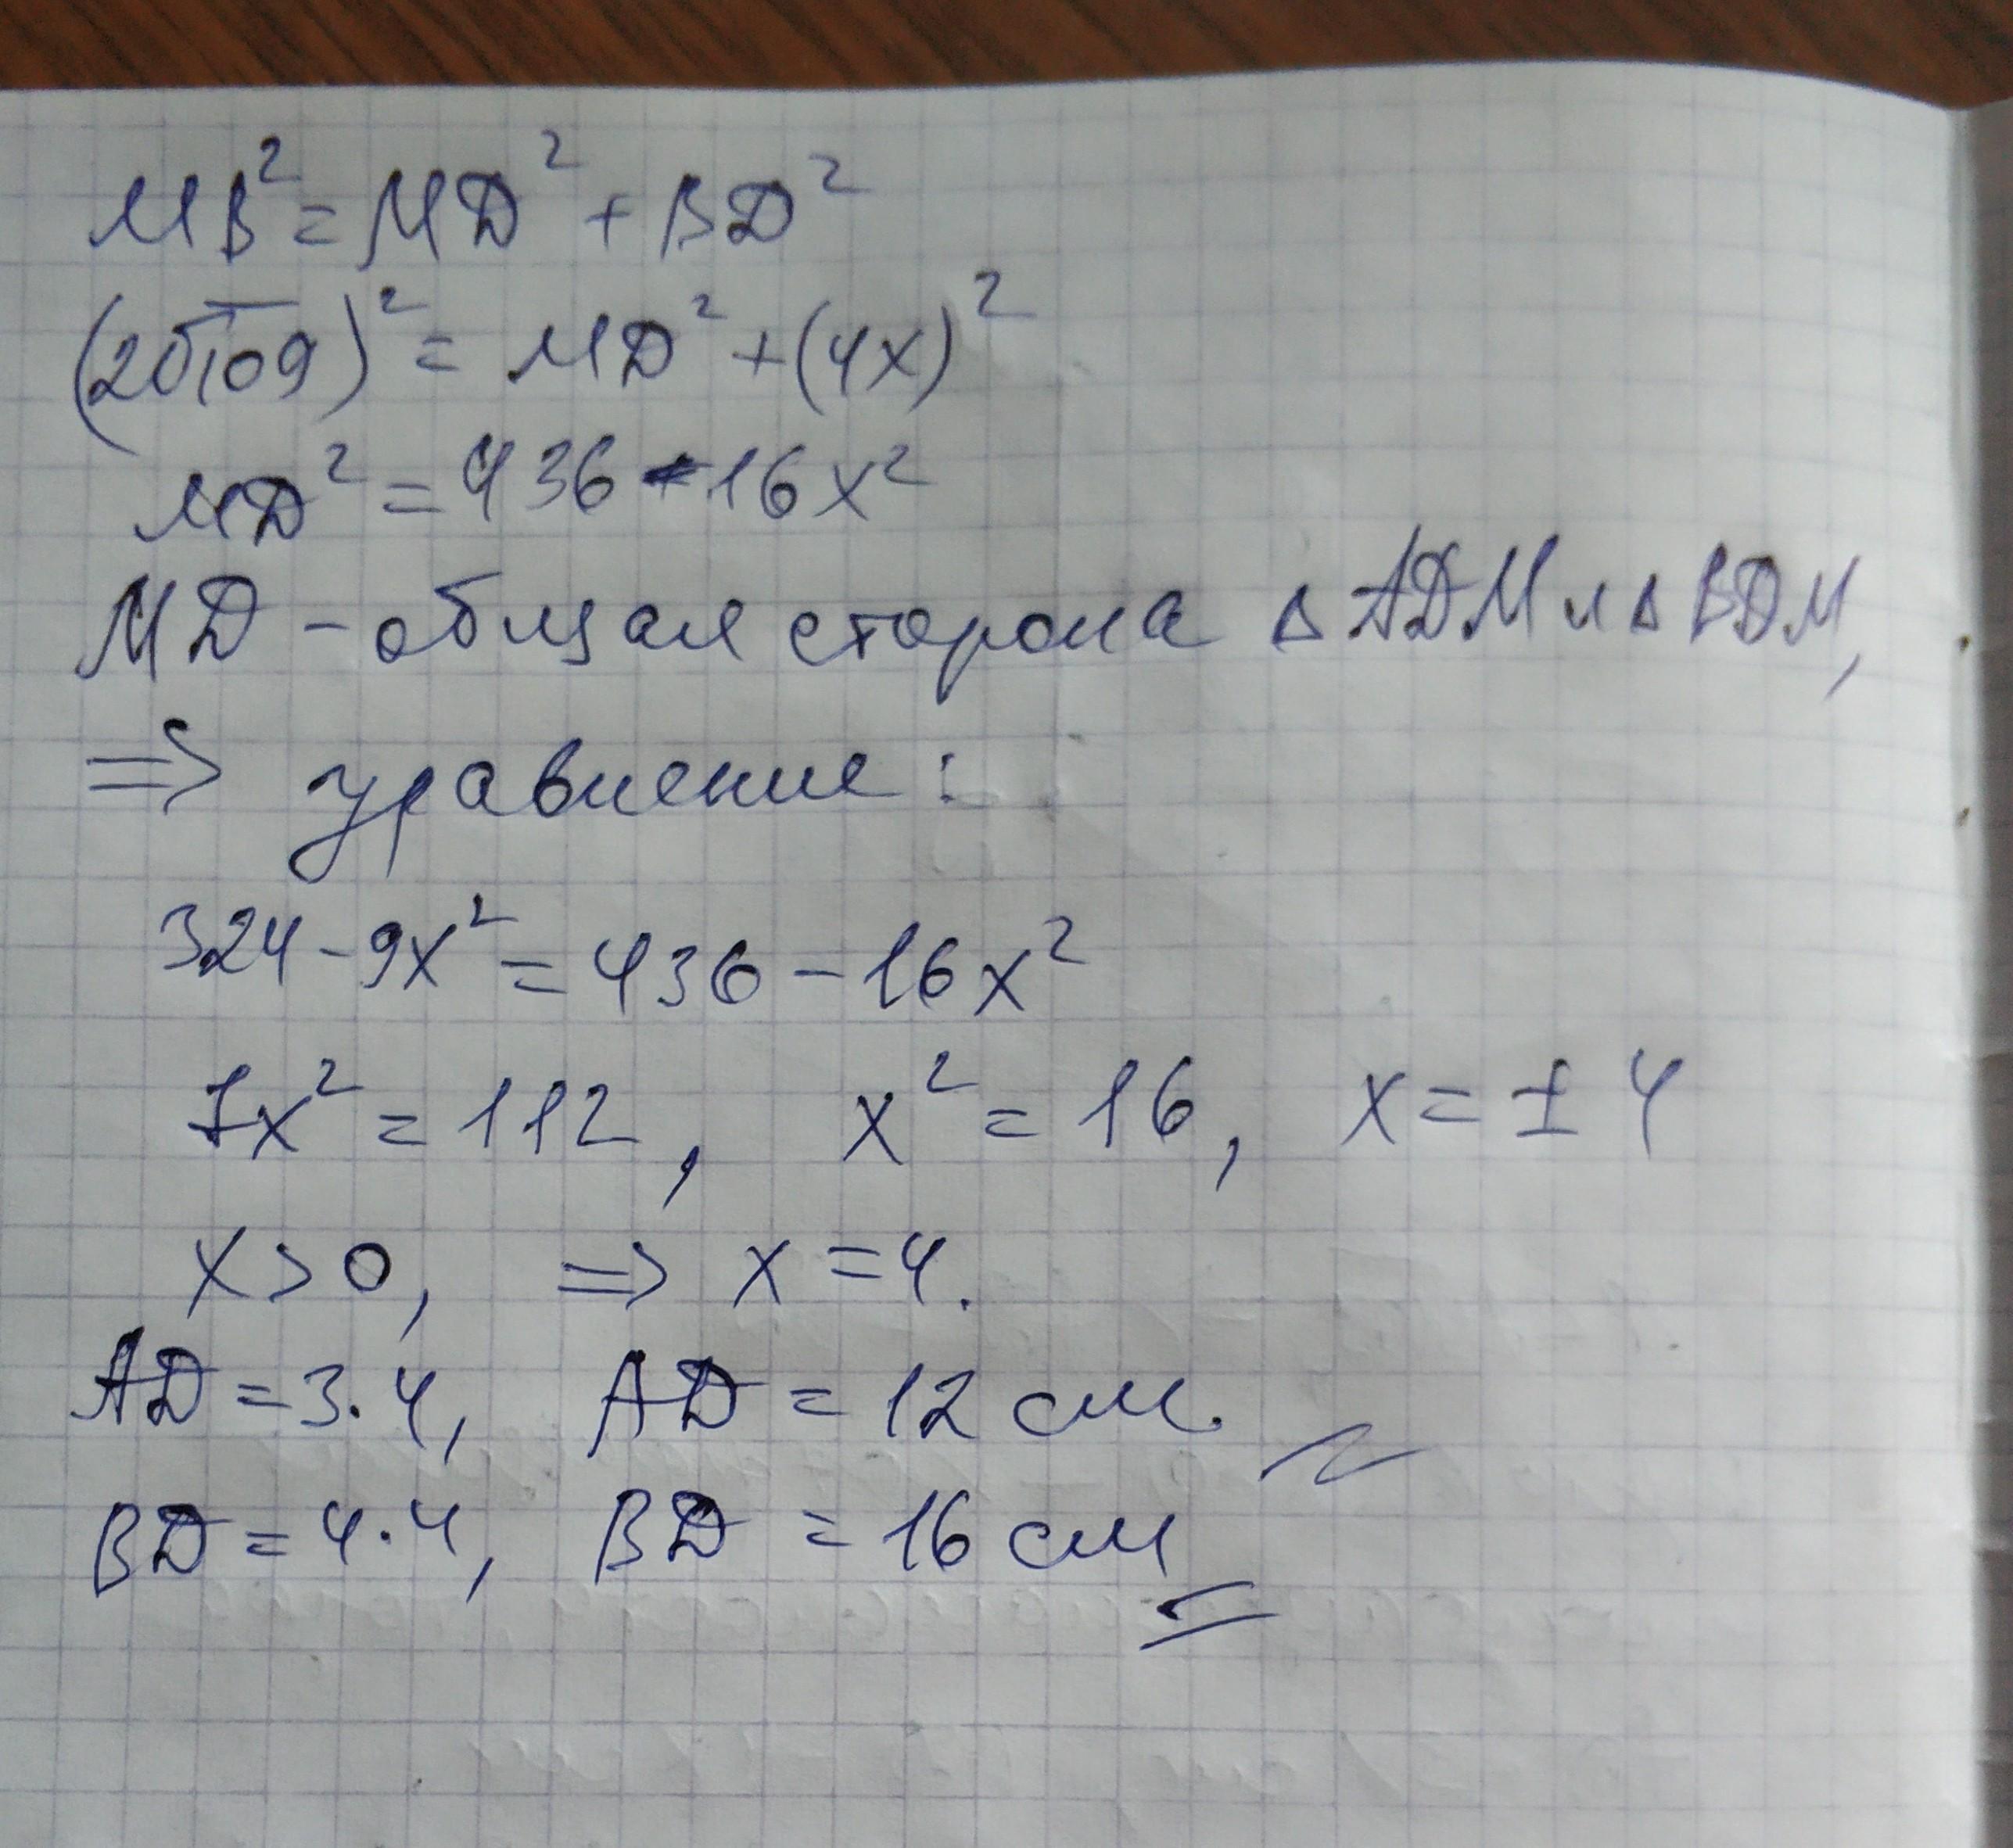 MB² = MD² + BD²
(2√109)² = MD² + (4x)²
MD² = 436 - 16x²
MD - общая сторона Δ ADM и Δ BDM,
=> уравнение:
324 - 9x² = 436 - 16x²
7x² = 112, x² = 16, x = ± 4
x > 0, => x = 4.
AD = 3·4, AD = 12 см.
BD = 4·4, BD = 16 см